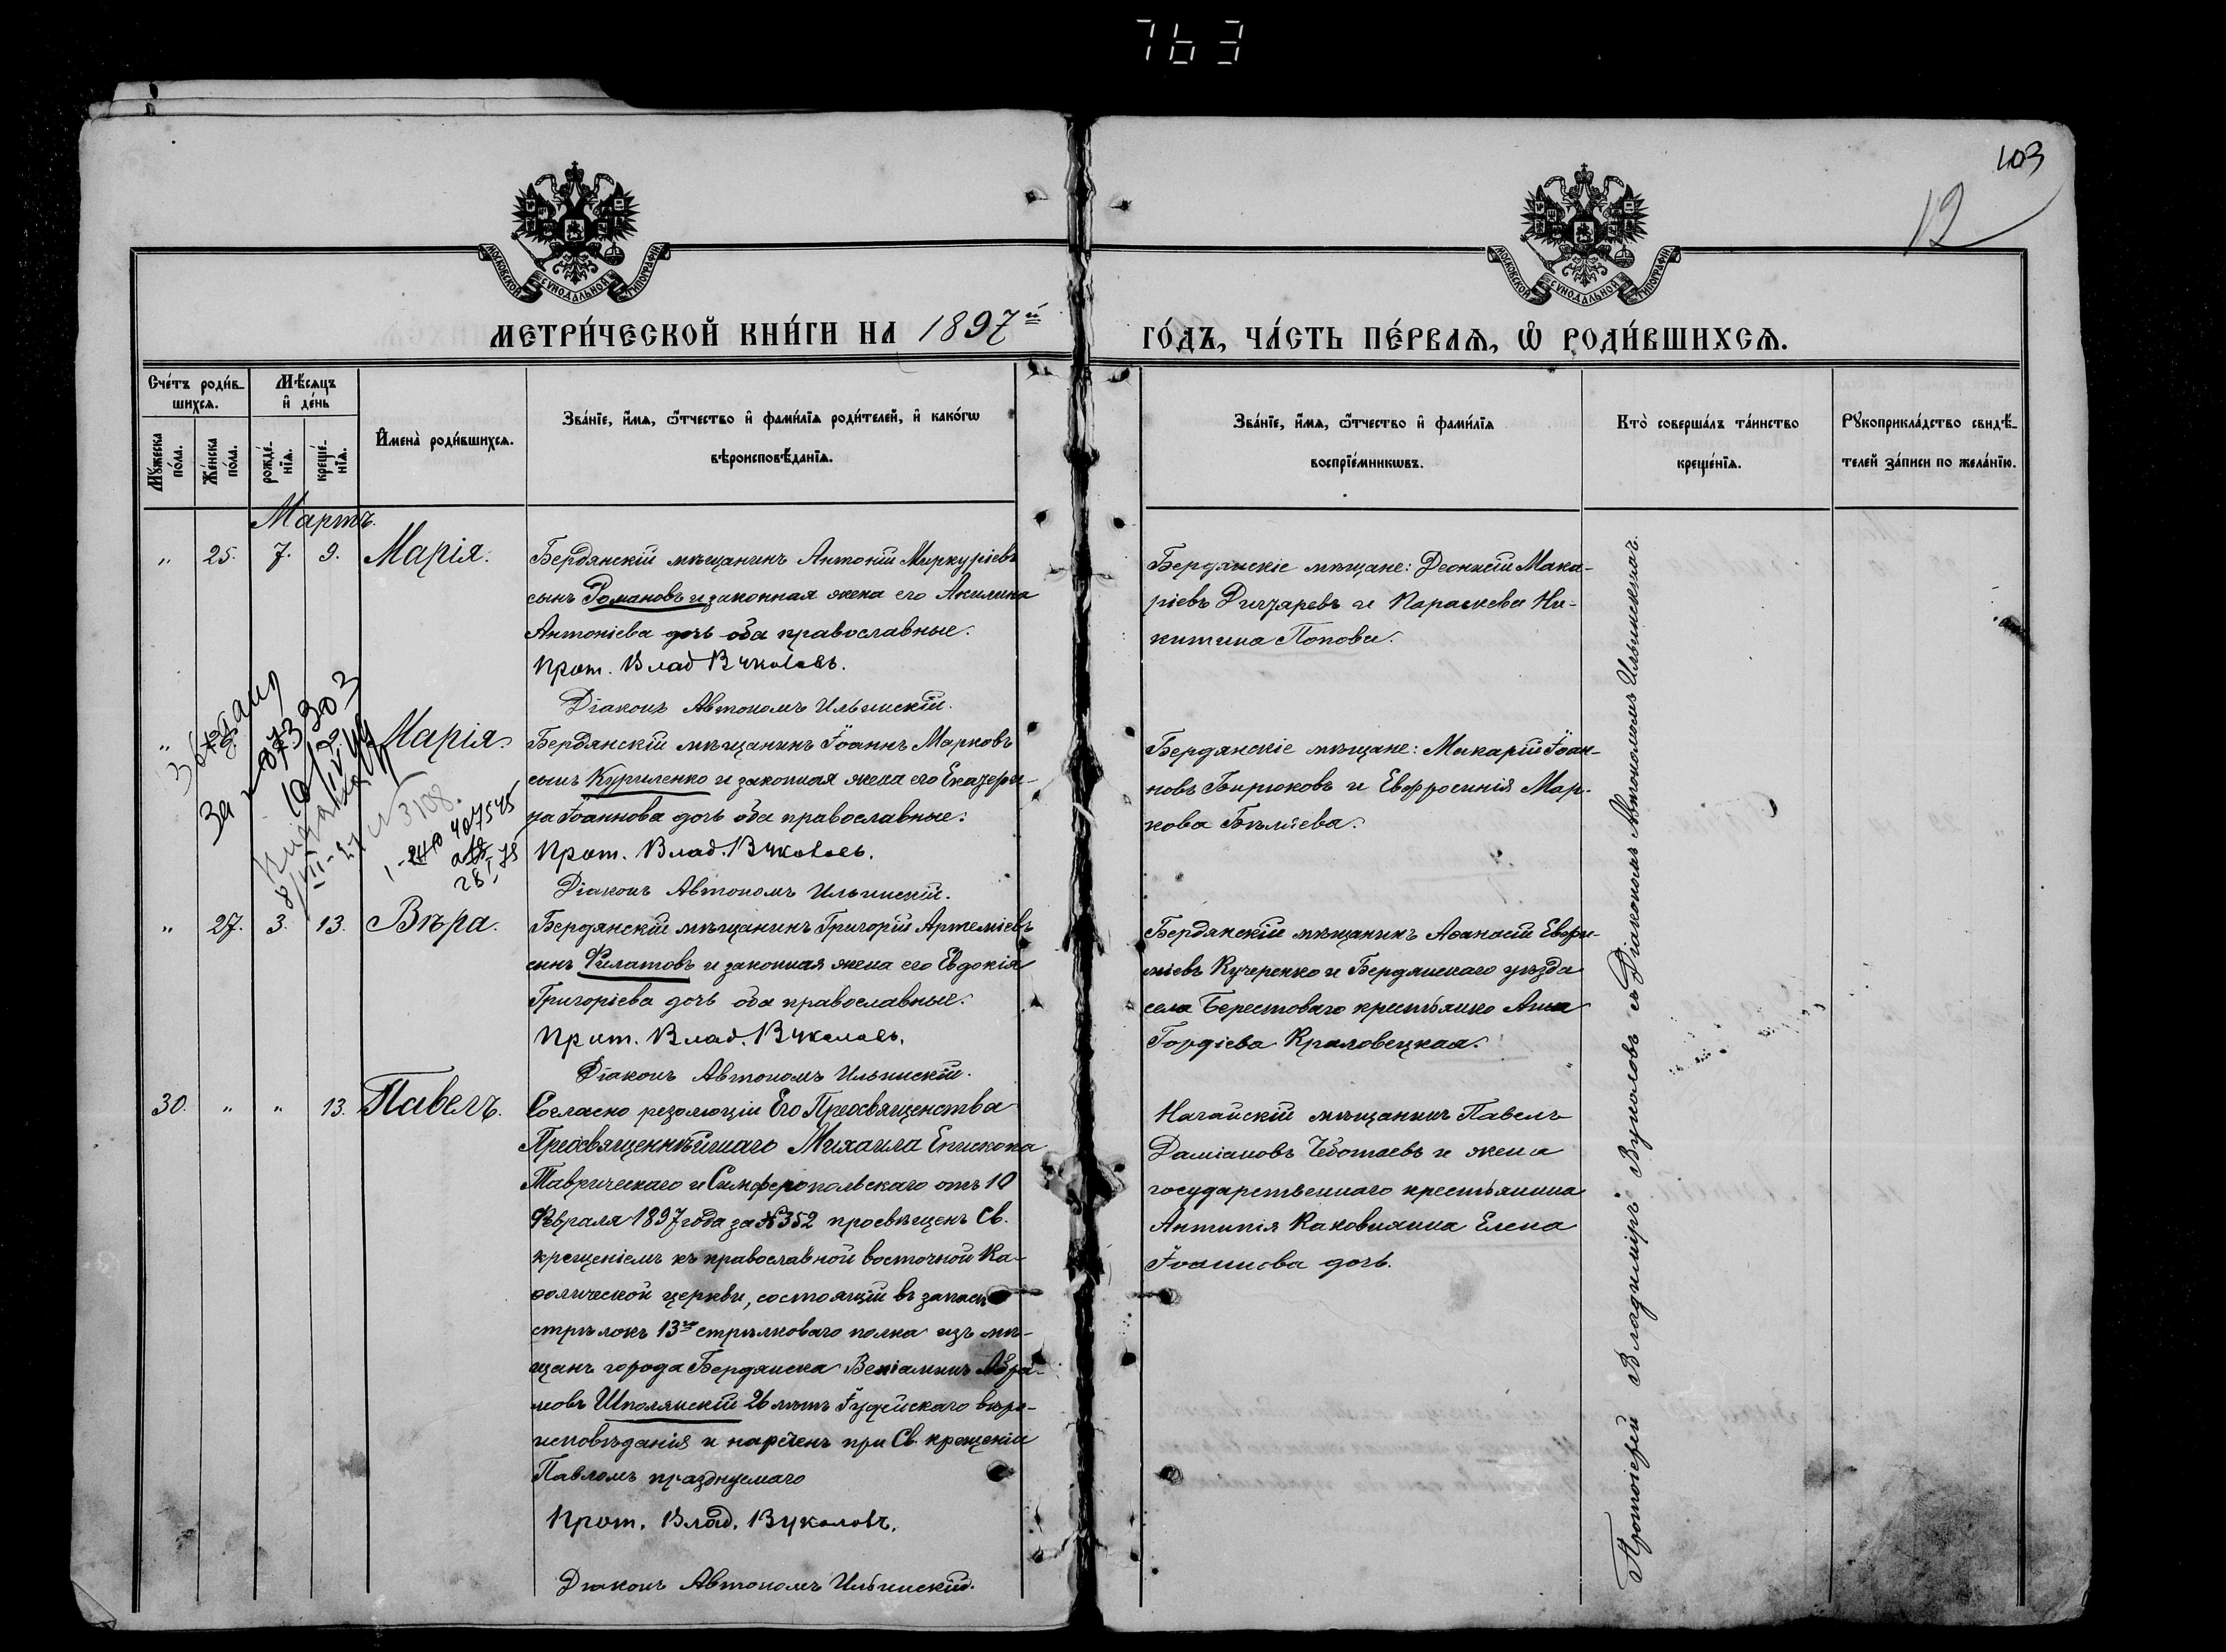 763
103
12
МОСКОВСКОЙ СѴНОДАЛЬНОЙ ТИПОГРАФІИ
МОСКОВСКОЙ СѴНОДАЛЬНОЙ ТИПОГРАФІИ
МЕТРИ́ЧЕСКОЙ КНИ́ГИ НА 1897й
ГО́ДЪ, ЧА́СТЬ ПЕ́РВАѦ, Ѽ РОДИ́ВШИХСѦ.
Сче́тъ роди́в-
шихсѧ.
Мѣ́сѧцъ
и҆ де́нь
Мꙋ́жеска
по́ла.
Же́нска
по́ла.
рожде́-
нїѧ.
креще́-
нїѧ.
И҆мена̀ роди́вшихсѧ.
Зва́нїе, и҆́мѧ, ѻ҆́тчество и҆ фами́лїѧ роди́телей, и҆ како́гѡ
вѣроисповѣ́данїѧ.
Зва́нїе, и҆́мѧ, ѻ҆́тчество и҆ фами́лїѧ
воспрїе́мникѡвъ.
Кто̀ соверша́лъ та́инство
креще́нїѧ.
Рꙋкоприкла́дство свидѣ́-
телей за́писи по жела́нїю.
Мартъ.
„ 25. 7. 9. Марія.
Бердянскій мѣщанинъ Антоній Меркуріевъ
сынъ Романовъ и законная жена его Акилина
Антоніева дочь оба православные.
Прот. Влад. Вуколовъ.
Діаконъ Автономъ Ильинскій.
Бердянскіе мѣщане: Леонтій Мака-
ріевъ и Параскева Ни-
китина Попова.
„ Марія.
Бердянскій мѣщанинъ Іоаннъ Марковъ
сынъ Куриленко и законная жена его Екатери-
на Іоаннова дочь оба православные.
Прот. Влад. Вуколовъ.
Діаконъ Автономъ Ильинскій.
Бердянскіе мѣщане: Макарій Іоан-
новъ Бирюковъ и Евфросинія Мар-
кова Бѣляева.
3108
„ 27. 3. 13. Вѣра.
Бердянскій мѣщанинъ Григорій Артеміевъ
сынъ Филатовъ и законная жена его Евдокія
Григоріева дочь оба православные.
Прот. Влад. Вуколовъ.
Діаконъ Автономъ Ильинскій.
Бердянскій мѣщанинъ Аѳанасій Евфи-
міевъ Кучеренко и Бердянскаго уѣзда
села Берестоваго крестьянка Анна
Гордіева Кроловецкая.
30. „ „ 13. Павелъ.
Согласно резолюціи Его Преосвященства
Преосвященнѣйшаго Михаила Епископа
Таврическаго и Симферопольскаго отъ 10
Февраля 1897 года за №352 просвѣщенъ Св.
крещеніемъ къ православной восточной Ка-
ѳолической церкви, состоящій въ запасѣ
стрѣлокъ 13го стрѣлковаго полка изъ мѣ-
щанъ города Бердянска Веніаминъ Абра-
мовъ Шполянскій 26 лѣтъ Іудейскаго вѣро-
исповѣданія и нареченъ при Св. крещеніи
Павломъ празднуемаго
Прот. Влад. Вуколовъ.
Діаконъ Автономъ Ильинскій.
Ногайскій мѣщанинъ Павелъ
Даміановъ Чеботаевъ и жена
государственнаго крестьянина
Антипія Каковкина Елена
Іоаннова дочь.
Протоіерей Владиміръ Вуколовъ съ Діакономъ Автономомъ Ильинскимъ.